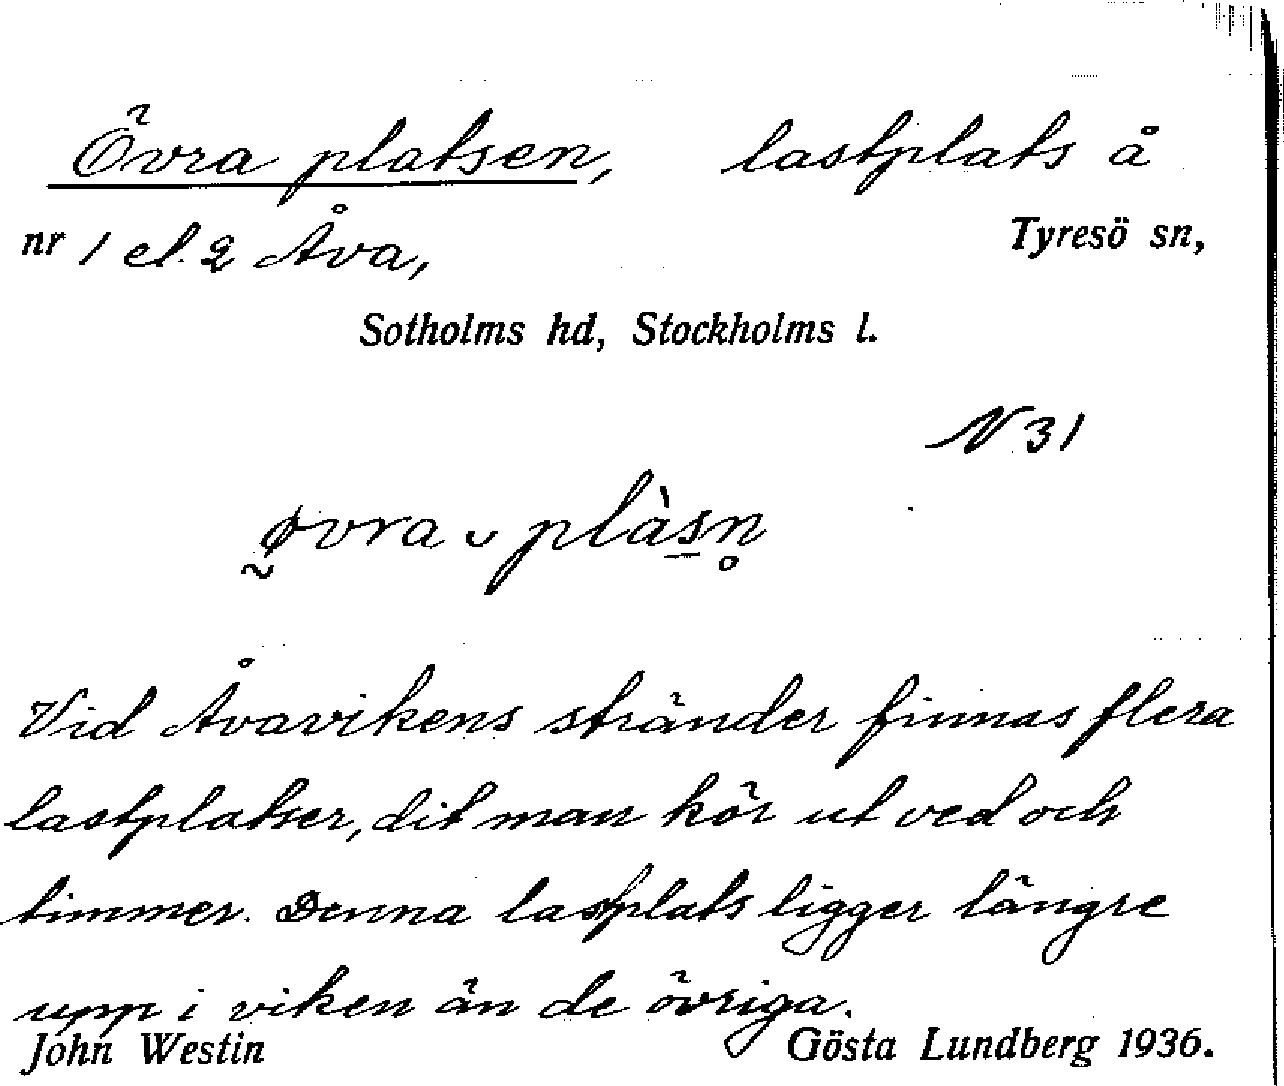 Övra platsen, lastplats å
nr 1 el. 2 Åva, Tyresö sn,
Sotholms hd, Stockholms l.
N 31
ø̰vra ᴗ plàs̠n̥
Vid Åvavikens stränder finnas flera
lastplatser, dit man kör ut ved och
timmer. Denna lastplats ligger längre
upp i viken än de övriga.
John Westin Gösta Lundberg 1936.